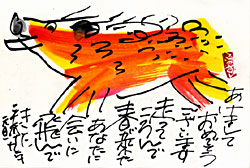 あけまして
おめでとう
ございます
走って
ころんで
春が来た
あなたに
会いに
飛んで
きた
元旦